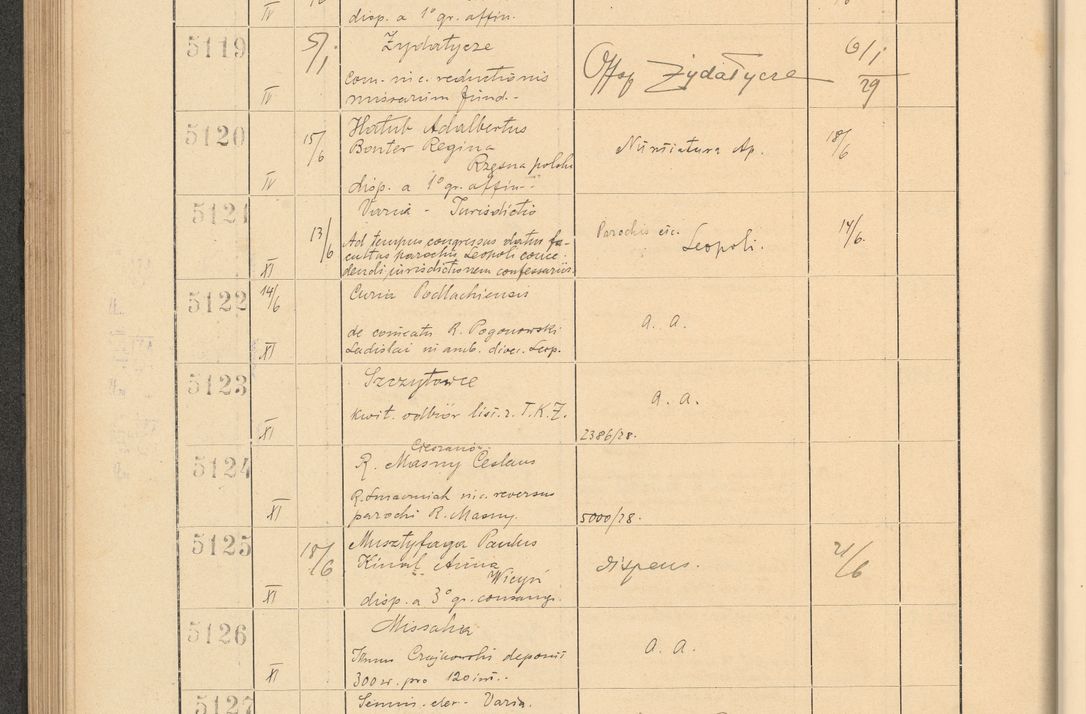 IV disp. a 1° gr. affin.
5119 5/I Żydatycze
com. nic. reductionis
IV missarum fund.-
Offop Żydatycze 6/I 29
5120 15/6 Hołub Adalbertus
Bonter Regina
Rzęsna polski
IV disp. a 1° gr. affin.
Nuntiatura Ap. 18/6
5121 13/6 Varia - Jurisdictio
Ad tempus congressus datur fa-
cultas parochis Leopoli conce-
XI dendi jurisdictionem confessariis
Parochis eic. Leopoli. 14/6.
5122 14/6 Curia Podlachiensis
de comeatu R. Pogonowski
XI Ladislai in amb. dioec. Leop.
a. a.
5123 Szczytowce
kwit. odbiór list. z. T.K.Z.
XI
a. a.
2386/28.
5124 Cieszanów
R. Masny Ceslaus
R. nic. reversus
XI parochi R. Masny.
5000/28.
5125 18/6 Musztyfaga Paulus
Kinal Anna
Wicyń
XI disp. a 3° gr. consang.
dispens. 21/6
5126 Missalia
Czajkowski deposuit
XI 300 zł. pro 120 int.
a. a.
5127 Semin. cler. Varia.